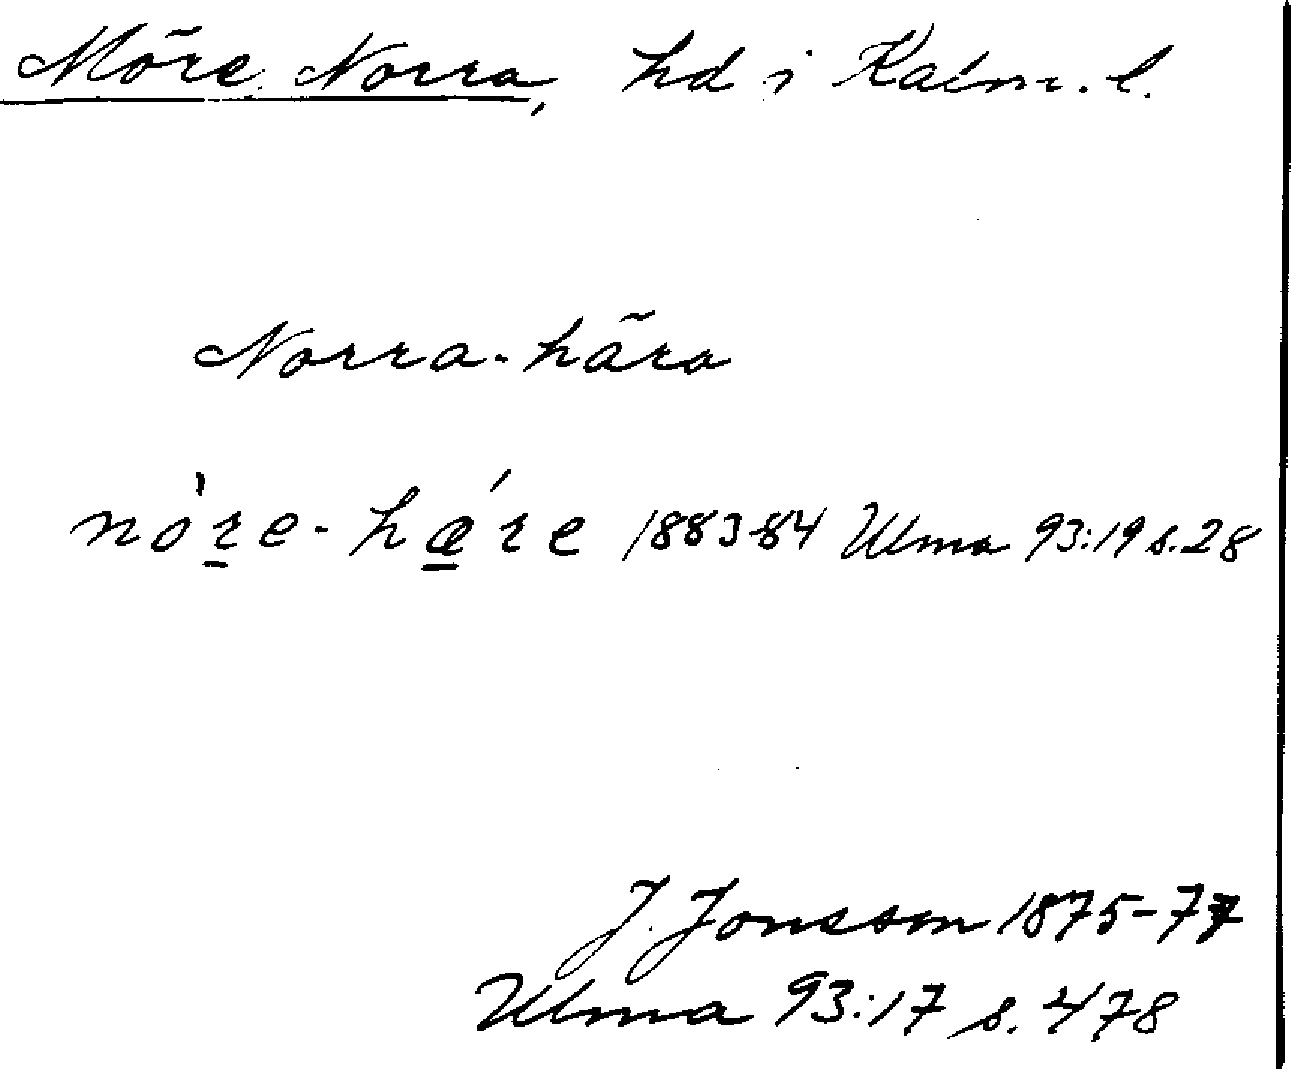 Möre Norra, hd i Kalm. l.
Norra-hära
nòr̲e-hǽ̲re 1883-84 Ulma 93:19 s.28
J. Jonsson 1875-77
Ulma 93:17 s. 478